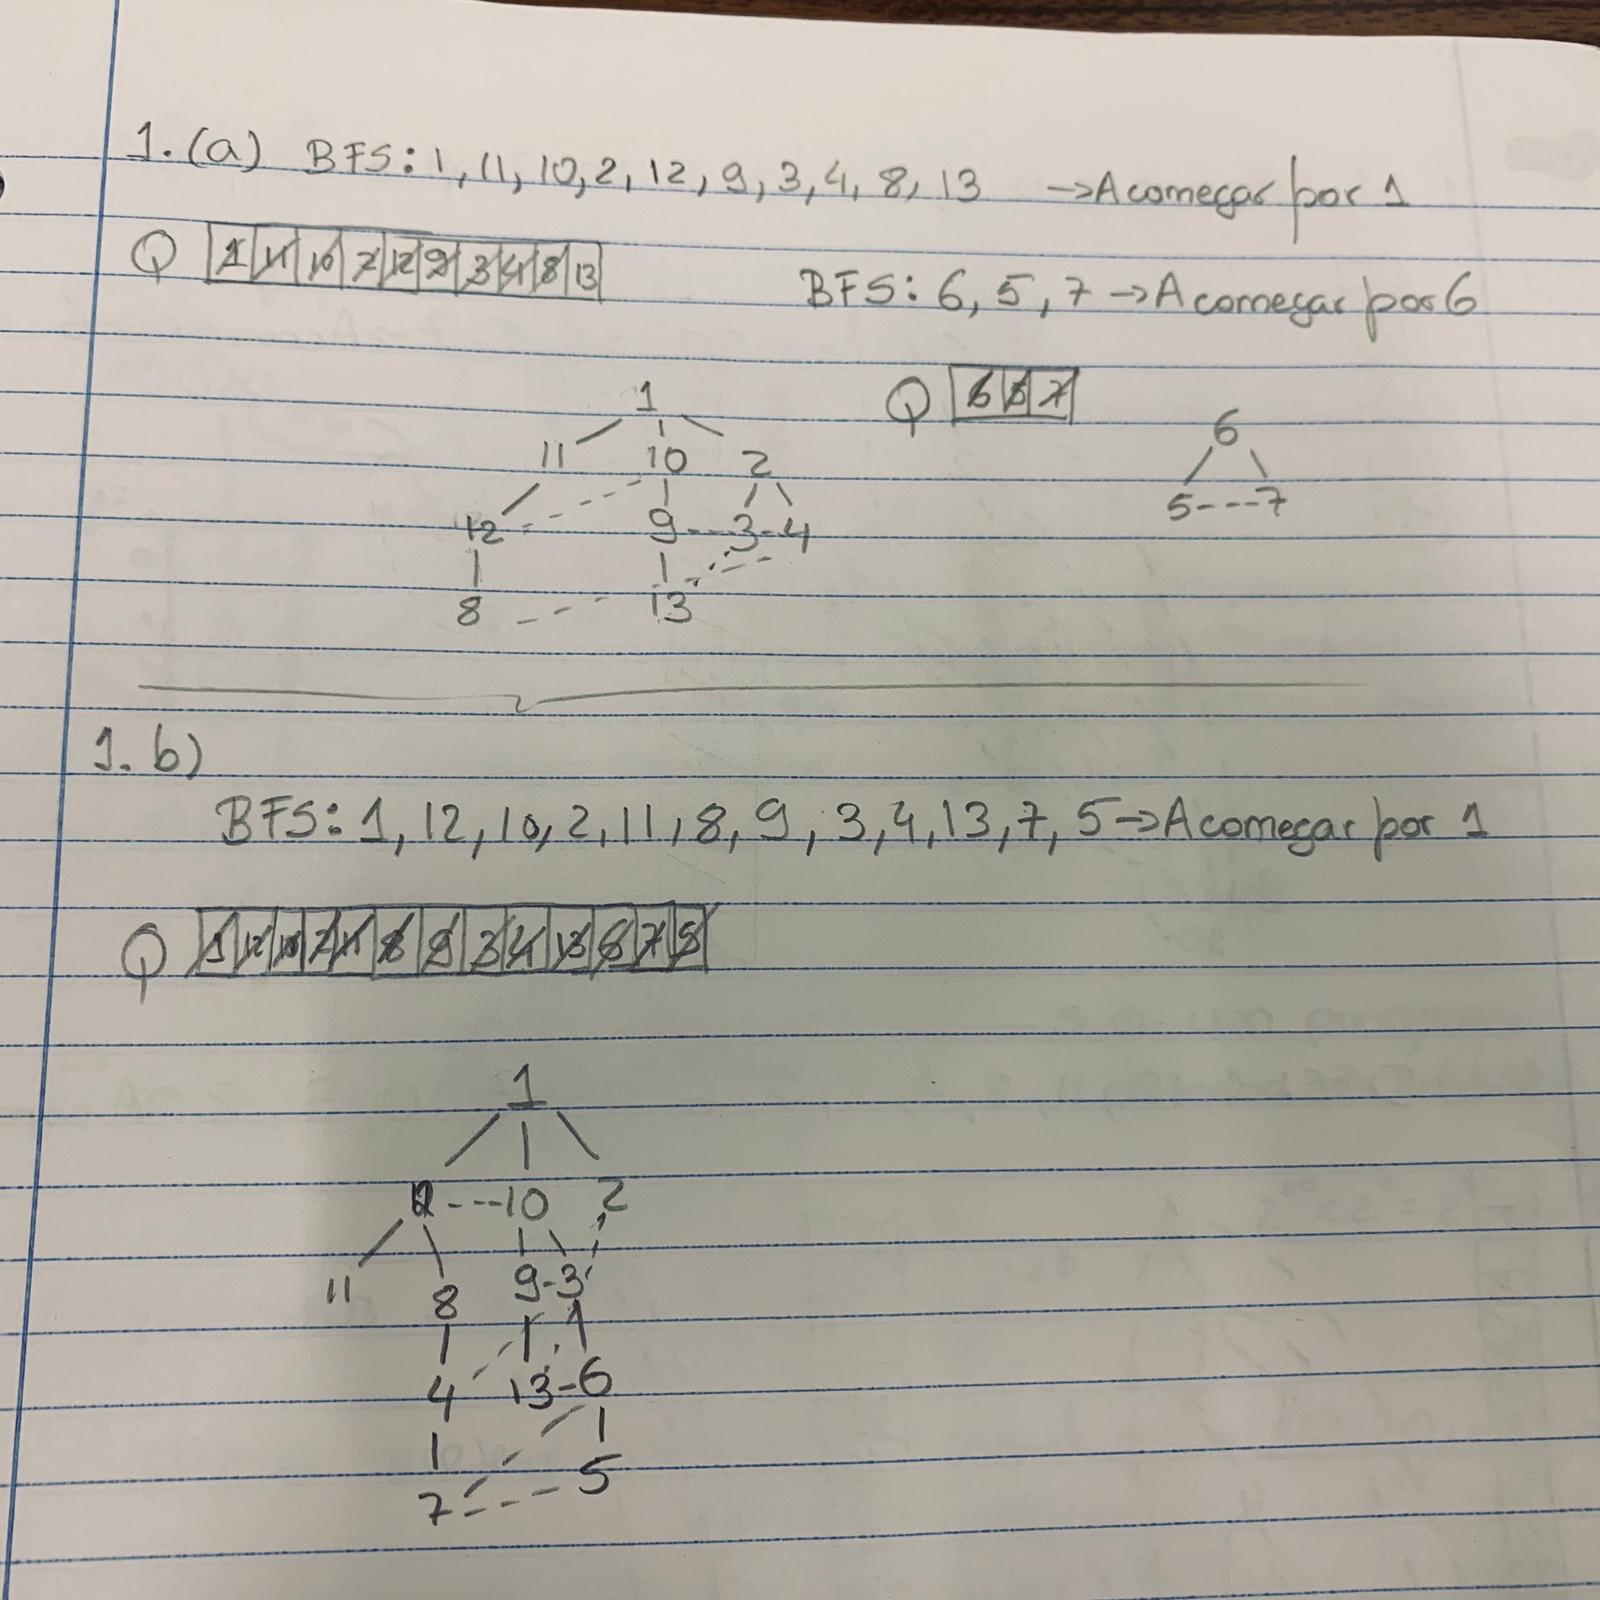 1. (a) BFS: 1, 11, 10, 2, 12, 9, 3, 4, 8, 13 → A começar por 1
Q 1 11 10 2 12 9 3 4 8 13
BFS: 6, 5, 7 → A começar por 6
Q 6 5 7
1
11 10 2
12 9 3 4
8 13
6
5 7
1. b)
BFS: 1, 12, 10, 2, 11, 8, 9, 3, 4, 13, 7, 5 → A começar por 1
Q 1 12 10 2 11 8 9 3 4 13 6 7 5
1
12 10 2
11 8 9 3
4 13 6
7 5